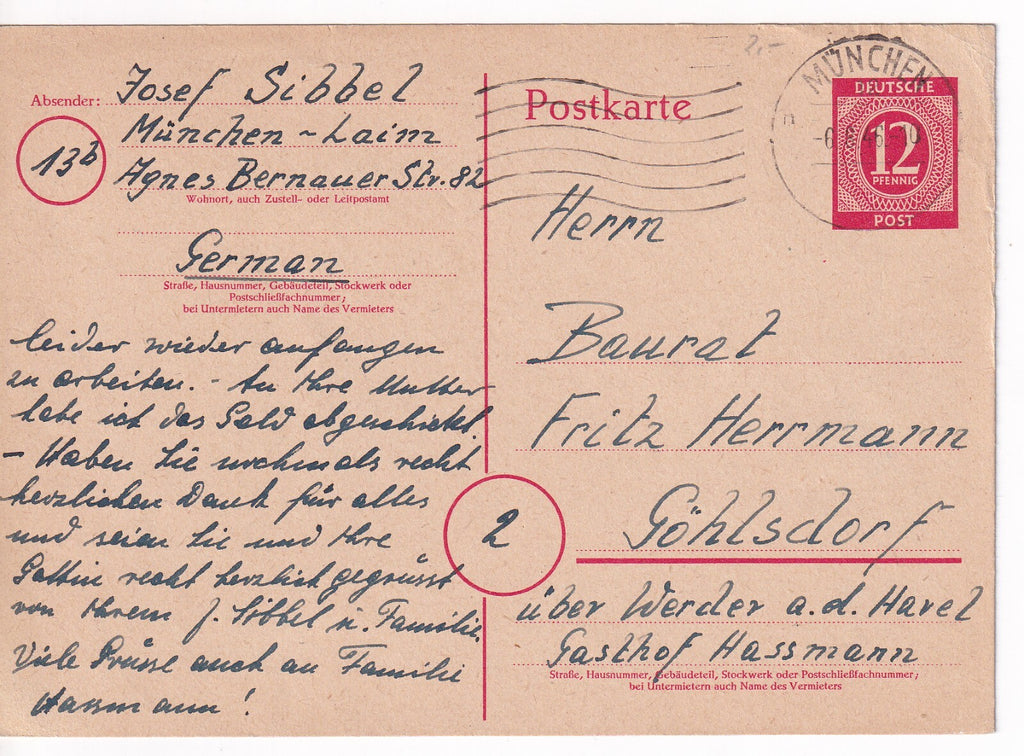 2,-
Absender: Josef Sibbel
München - Laim
13b
Agnes Bernauer Str. 82
Wohnort, auch Zustell- oder Leitpostamt
German
Straße, Hausnummer, Gebäudeteil, Stockwerk oder
Postschließfachnummer;
bei Untermietern auch Name des Vermieters
leider wieder anfangen
zu arbeiten. - An Ihre Mutter
habe ich das Geld abgeschickt.
- Haben Sie nochmals recht
herzlichen Dank für alles
und seien Sie und Ihre
Gattin recht herzlich gegrüsst
von Ihrem J. Sibbel u. Familie.
Viele Grüsse auch an Familie
Hassmann!
Postkarte
MÜNCHEN
DEUTSCHE
12
PFENNIG
POST
Herrn
Baurat
Fritz Herrmann
2
Göhlsdorf
über Werder a.d. Havel
Gasthof Hassmann
Straße, Hausnummer, Gebäudeteil, Stockwerk oder Postschließfachnummer;
bei Untermietern auch Name des Vermieters